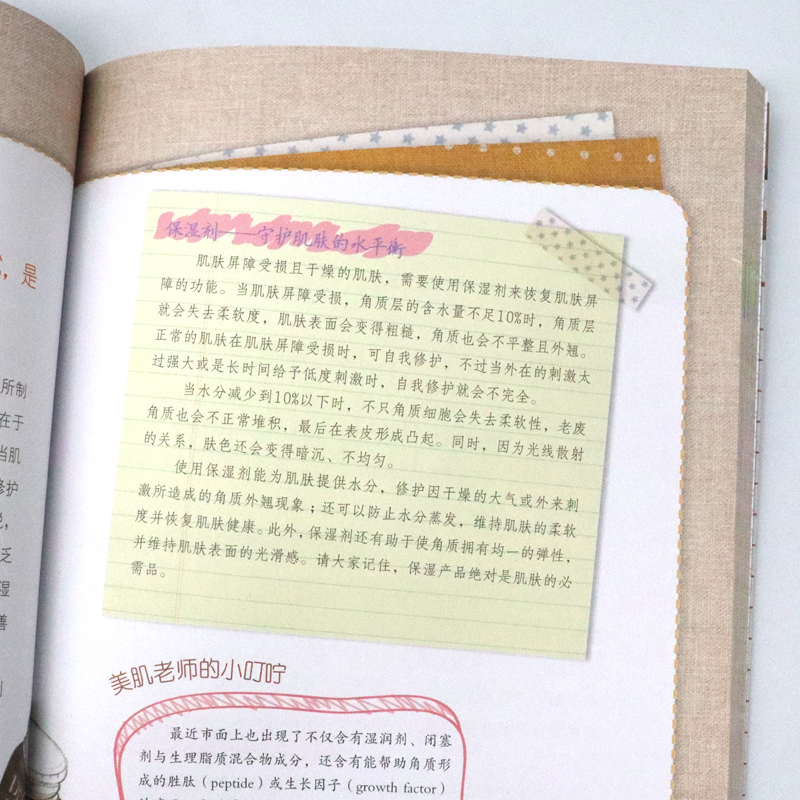 ，是
所制
在于
当肌
修护
乏
湿
善
保湿剂——守护肌肤的水平衡
肌肤屏障受损且干燥的肌肤，需要使用保湿剂来恢复肌肤屏
障的功能。当肌肤屏障受损，角质层的含水量不足10%时，角质层
就会失去柔软度，肌肤表面会变得粗糙，角质也会不平整且外翘。
正常的肌肤在肌肤屏障受损时，可自我修护，不过当外在的刺激太
过强大或是长时间给予低度刺激时，自我修护就会不完全。
当水分减少到10%以下时，不只角质细胞会失去柔软性，老废
角质也会不正常堆积，最后在表皮形成凸起。同时，因为光线散射
的关系，肤色还会变得暗沉、不均匀。
使用保湿剂能为肌肤提供水分，修护因干燥的大气或外来刺
激所造成的角质外翘现象；还可以防止水分蒸发，维持肌肤的柔软
度并恢复肌肤健康。此外，保湿剂还有助于使角质拥有均一的弹性，
并维持肌肤表面的光滑感。请大家记住，保湿产品绝对是肌肤的必
需品。
美肌老师的小叮咛
最近市面上也出现了不仅含有湿润剂、闭塞
剂与生理脂质混合物成分，还含有能帮助角质形
成的胜肽（peptide）或生长因子（growth factor）